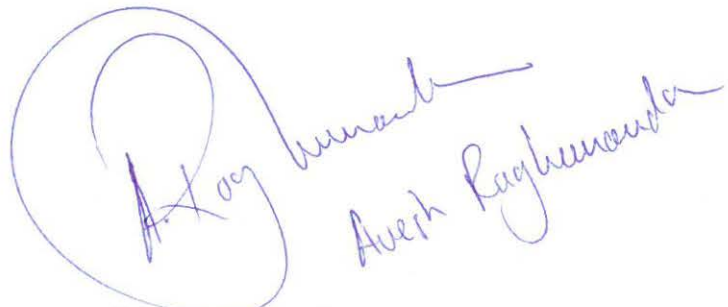 A. Raghunandan
Avesh Raghunandan